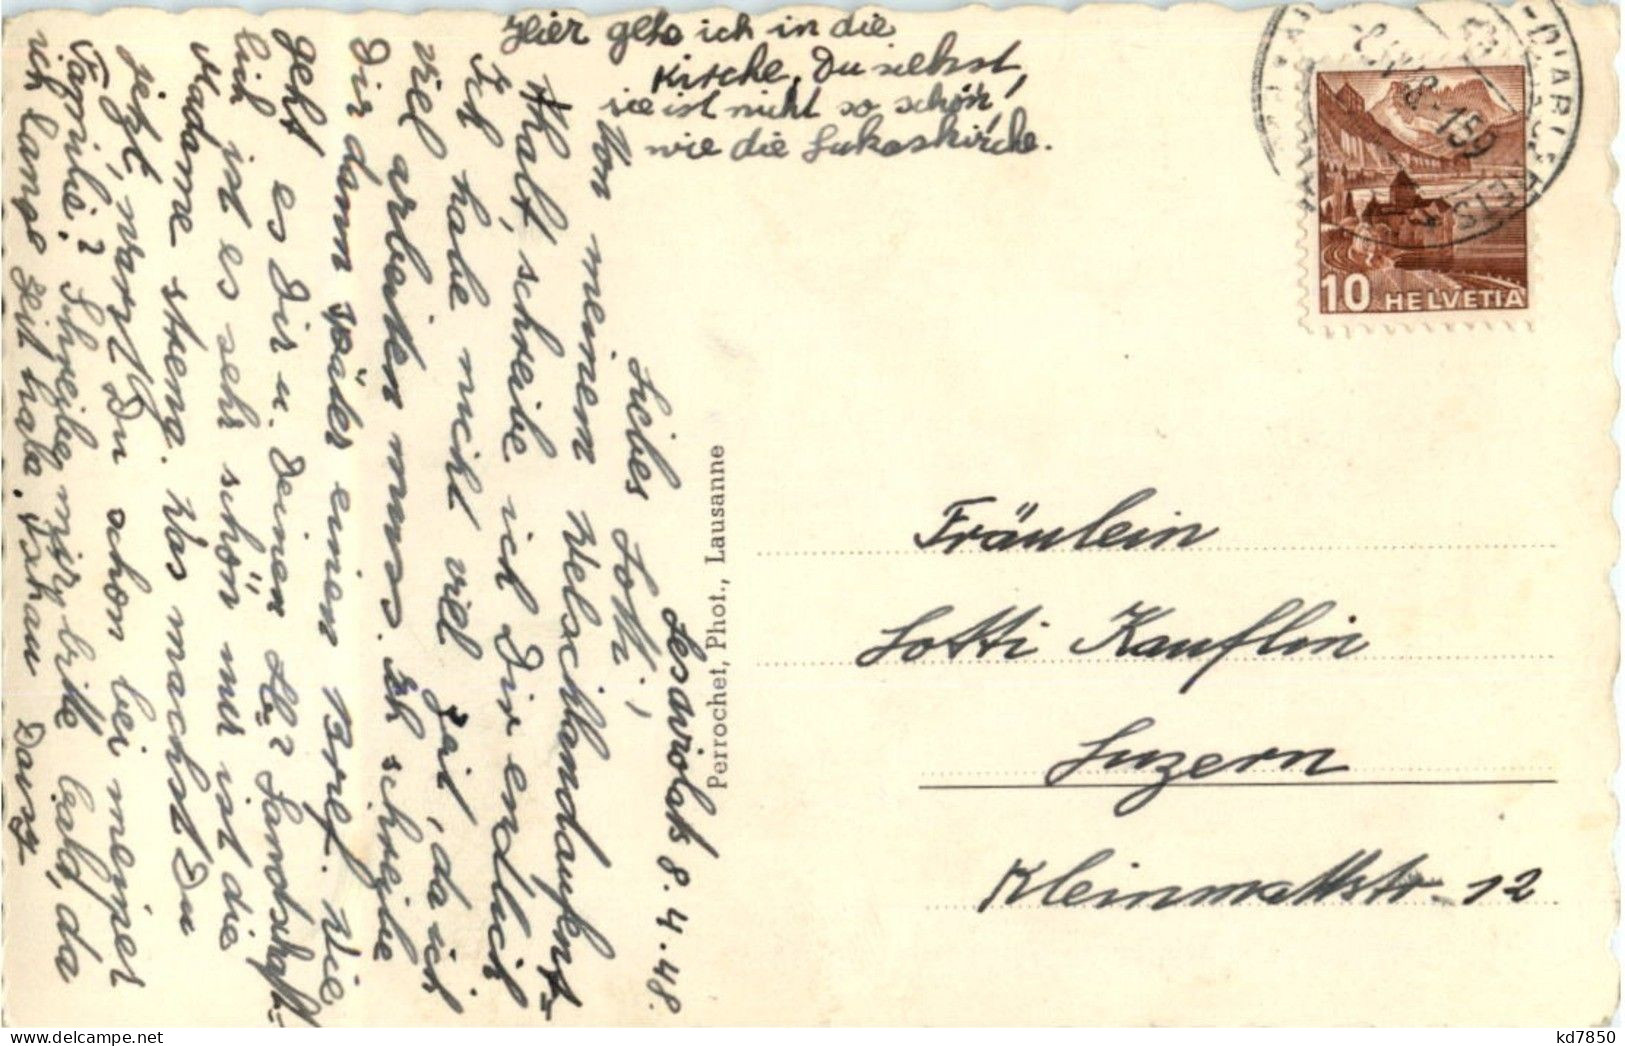 Hier gehe ich in die
Kirche, Du siehst,
sie ist nicht so schön,
wie die Lukaskirche.
Lesaviolats 8.4.48.
Liebes Lotti,
Von meinem Welschlandaufent=
halt, schreibe ich Dir endlich
Ich habe nicht viel Zeit, da ich
viel arbeiten muss. Ich schreibe
Dir dann später einen Brief. Wie
geht es Dir u. Deinen Lb? Landschaft=
lich ist es sehr schön nur ist die
Madame streng. Was machst Du
jetzt, warst Du schon bei meiner
Familie? Schreibe mir bitte bald, da
ich lange Zeit habe. Tschau
Perrochet, Phot., Lausanne
10 HELVETIA
Fräulein
Lotti Kauflin
Luzern
Kleinmattstr. 12
kd7850